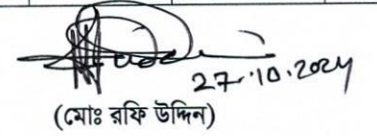 27.10.2024
(মোঃ রফি উদ্দিন)